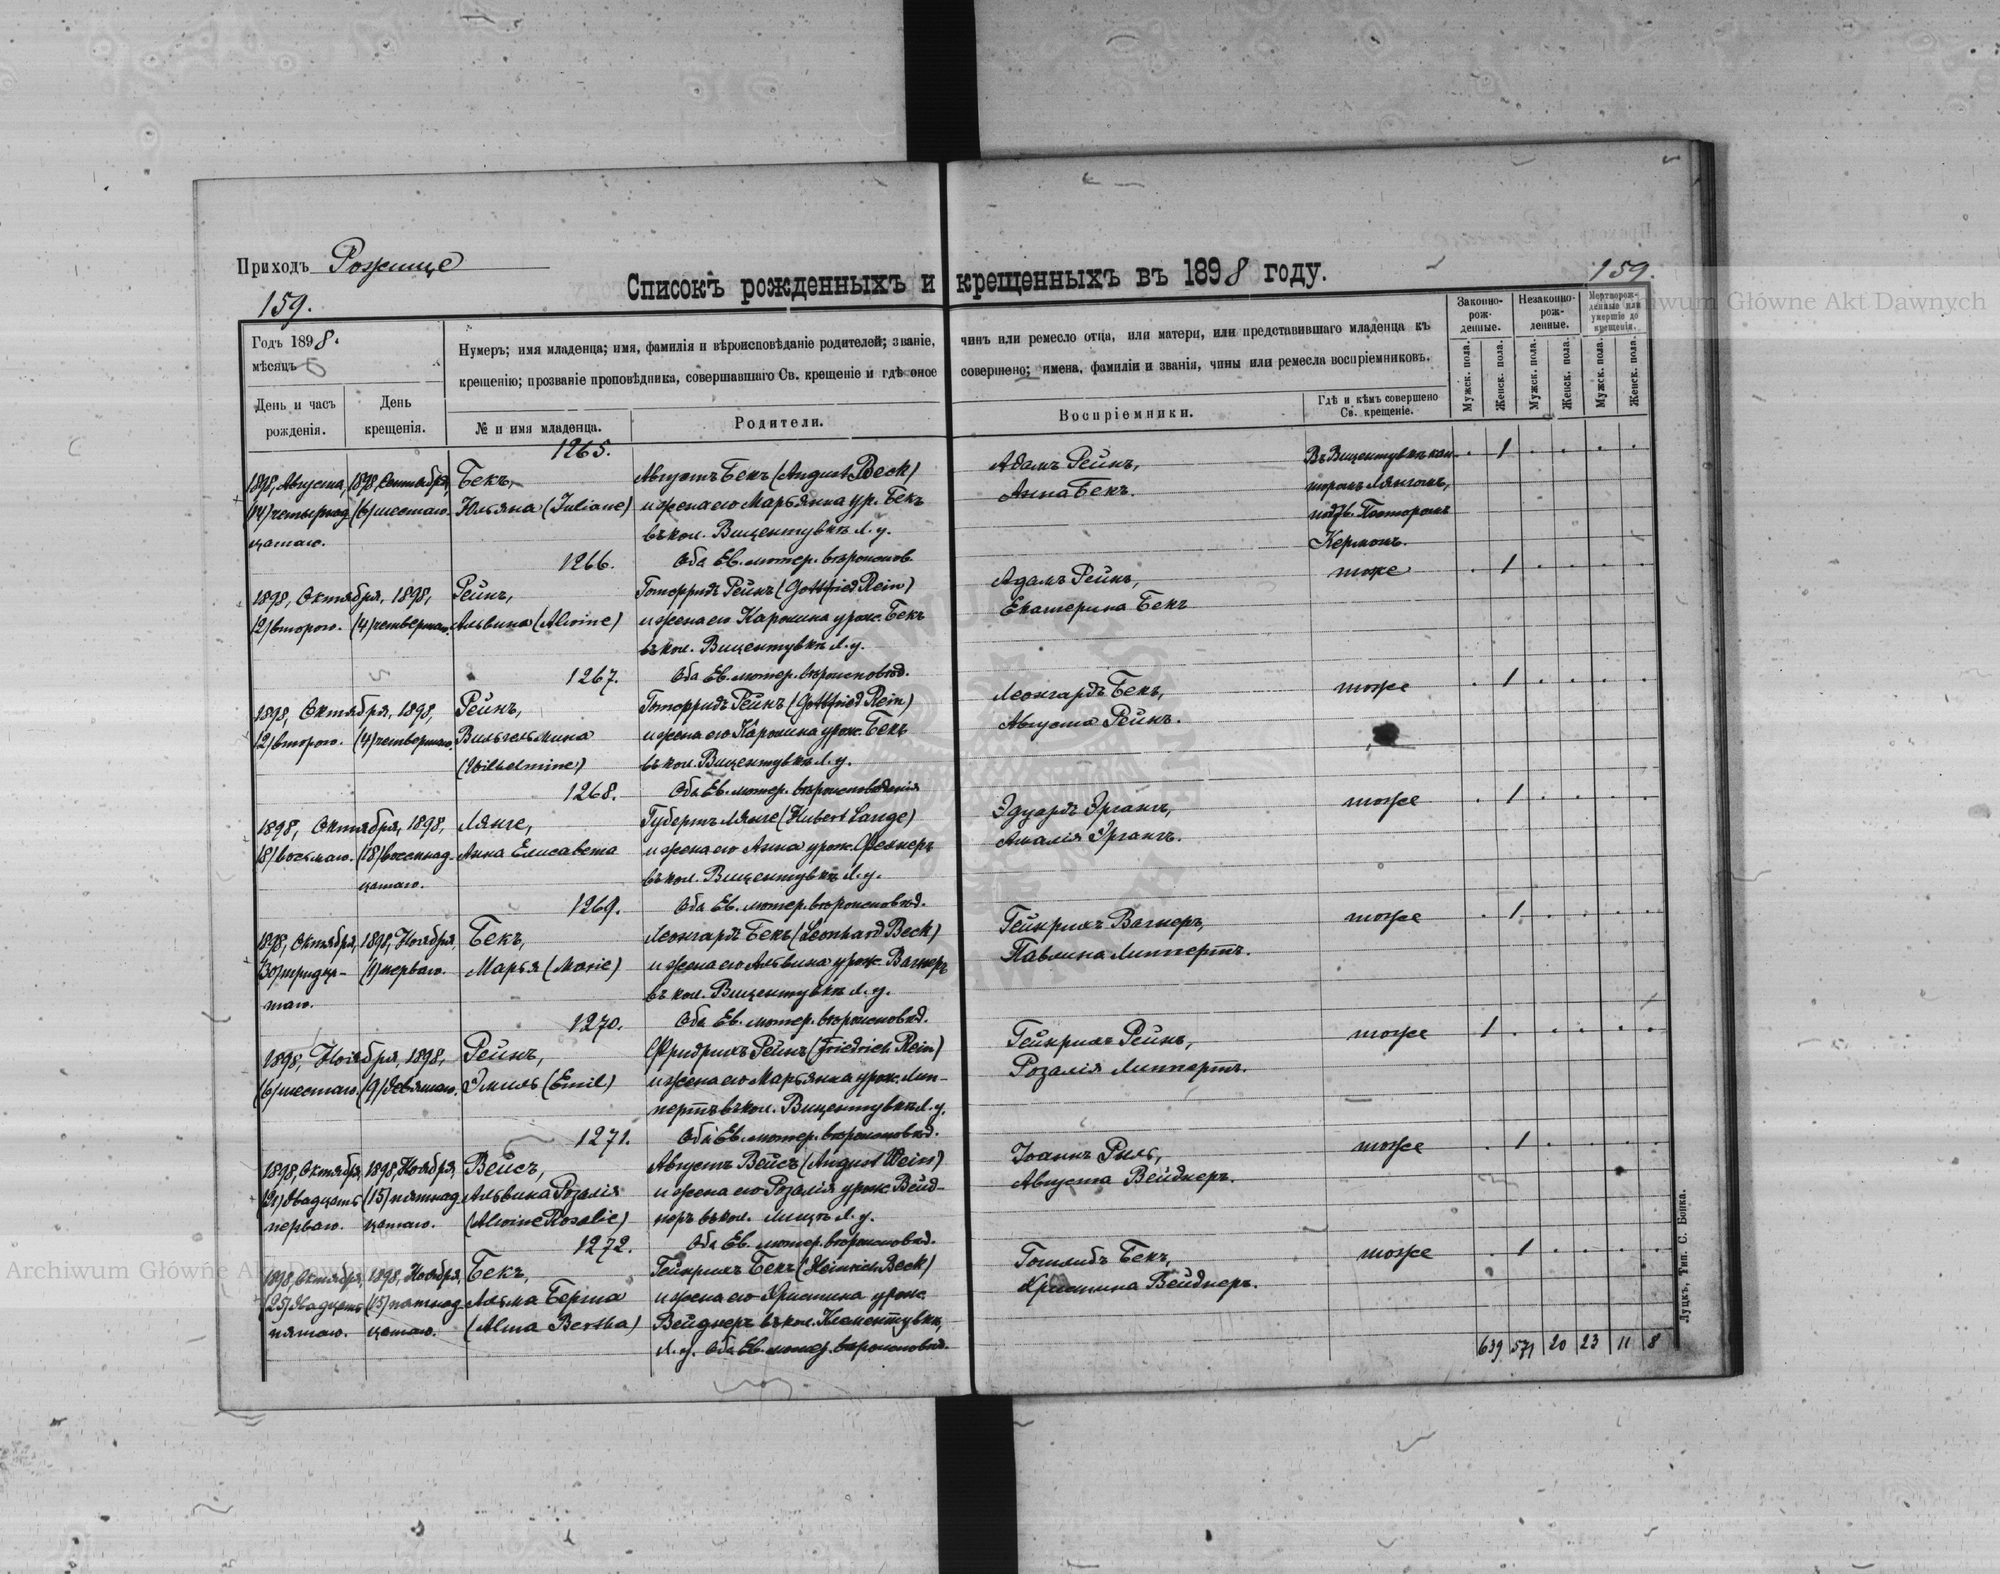 Приходъ Рожище
159.
159.
Списокъ рожденныхъ и крещенныхъ въ 1898 году.
Годъ 1898.
мѣсяцъ
Нумеръ; имя младенца; имя, фамилія и вѣроисповѣданіе родителей; званіе, чинъ или ремесло отца, или матери, или представившаго младенца къ
крещенію; прозваніе проповѣдника, совершавшаго Св. крещеніе и гдѣ оное совершено; имена, фамиліи и званія, чины или ремесла воспріемниковъ.
Законно-
рож-
денные.
Незаконно-
рож-
денные.
Мертворож-
денные или
умершіе до
крещенія.
День и часъ
рожденія.
День
крещенія.
№ и имя младенца.
Родители.
Воспріемники.
Гдѣ и кѣмъ совершено
Св. крещеніе.
Мужск. пола.
Женск. пола.
Мужск. пола.
Женск. пола.
Мужск. пола.
Женск. пола.
1265.
1898, Августа,
(14) четырнад
цатаго.
1898, Сентября,
(6) шестаго.
Бекъ,
Юльяна (Juliane)
Августъ Бекъ (August Beck)
и жена его Марьянна ур. Бекъ
въ кол. Вицентувкѣ Л. у.
Оба Ев. лютер. вѣроисповѣ.
Адамъ Рейнъ,
Анна Бекъ.
Въ Вицентувкѣ кан
торомъ Лянгомъ,
подтв. Пасторомъ
Кермомъ.
. 1 . . . .
1266.
1898, Октября, 1898,
(2) втораго. (4) четвертаго.
Рейнъ,
Альвина (Alvine)
Готфридъ Рейнъ (Gottfried Rein)
и жена его Каролина урож. Бекъ
въ кол. Вицентувкѣ Л. у.
Оба Ев. лютер. вѣроисповѣд.
Адамъ Рейнъ,
Екатерина Бекъ
тоже
. 1 . . . .
1267.
1898, Октября, 1898,
(2) втораго. (4) четвертаго.
Рейнъ,
Вильгельмина
(Wilhelmine)
Готфридъ Рейнъ (Gottfried Rein)
и жена его Каролина урож. Бекъ
въ кол. Вицентувкѣ Л. у.
Оба Ев. лютер. вѣроисповѣданія
Леонгардъ Бекъ,
Августа Рейнъ.
тоже
. 1 . . . .
1268.
1898, Октября, 1898,
(8) восьмаго. (18) восемнад
цатаго.
Лянге,
Анна Елисавета
Губертъ Лянге (Hubert Lange)
и жена его Анна урож.
въ кол. Вицентувкѣ Л. у.
Оба Ев. лютер. вѣроисповѣд.
Эдуардъ Эргангъ,
Амалія Эргангъ.
тоже
. 1 . . . .
1269.
1898, Октября,
(30) тридца-
таго.
1898, Ноября,
(1) перваго.
Бекъ,
Марья (Marie)
Леонгардъ Бекъ (Leonhard Beck)
и жена его Альвина урож. Вагнеръ
въ кол. Вицентувкѣ Л. у.
Оба Ев. лютер. вѣроисповѣд.
Гейнрихъ Вагнеръ,
Павлина Липпертъ.
тоже
. 1 . . . .
1270.
1898, Ноября, 1898,
(6) шестаго. (9) девятаго.
Рейнъ,
Эмиль (Emil)
Фридрихъ Рейнъ (Friedrich Rein)
и жена его Марьянна урож. Лип-
пертъ въ кол. Вицентувкѣ Л. у.
Оба Ев. лютер. вѣроисповѣд.
Гейнрихъ Рейнъ,
Розалія Липпертъ.
тоже
1 . . . . .
1271.
1898, Октября,
(21) двадцать
перваго.
1898, Ноября
(15) пятнад
цатаго.
Вейсъ,
Альвина Розалія
(Alvine Rosalie)
Августъ Вейсъ (August Weiss)
и жена его Розалія урож. Вейд-
неръ въ кол. Л. у.
Оба Ев. лютер. вѣроисповѣд.
Іоаннъ Рыль,
Августа Вейднеръ.
тоже
. 1 . . . .
1272.
1898, Октября,
(25) двадцать
пятаго.
1898, Ноября,
(15) пятнад
цатаго.
Бекъ,
Альма Берта
(Alma Bertha)
Гейнрихъ Бекъ (Heinrich Beck)
и жена его Христина урож.
Вейднеръ въ кол. Клементувкѣ,
Л. у. Оба Ев. лютер. вѣроисповѣд.
Готлибъ Бекъ,
Христина Вейднеръ.
тоже
. 1 . . . .
639 571 20 23 11 8
Луцкъ, Тип. С. Бонка.
Archiwum Główne Akt Dawnych
Archiwum Główne Akt Dawnych